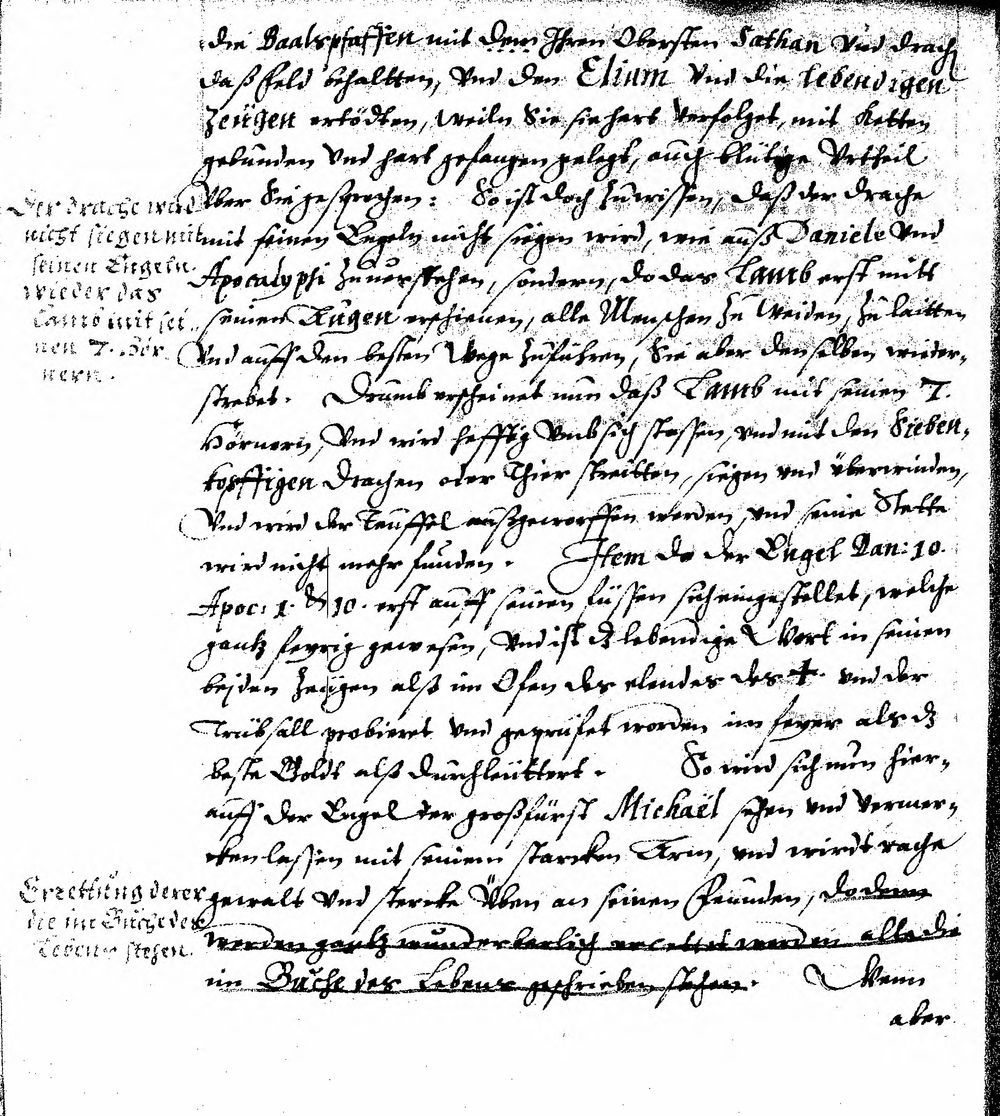 die Baalspfaffen mit dem Ihren Obersten Sathan und drach
daß Feld behaltten, Und den Elium Und die lebendigen
Zeügen ertödten, weiln Sie sie hart verfolget, mit Ketten
gebunden Und hart gefangen gelegt, auch blütige Urtheil
Über Sie gesprochen: So ist doch zuwissen, daß der drache
mit seinen Engeln nicht siegen wird, wie auß Daniele Und
Apocalypsi zuuerstehen, sondern, do das Lamb erst mitt
seinen Augen erschienen, alle Menschen zu Weiden, zu laitten
Und auff den besten Wege zuführen, Sie aber denselben wieder-
strebet. Drumb erscheinet nun daß Lamb mit seinen 7.
Hörnern, Und wird hefftig umb sich stossen, und mit den Sieben-
kopffigen drachen oder Thier streitten, siegen und überwinden,
Und wird der Teuffel außgeworffen werden, und seine Stette
wird nicht mehr funden. Item do der Engel Dan: 10.
Apoc: 1. & 10. erst auff seinen füssen sich eingestellet, welche
gantz feyrig gewesen, Und ist dz lebendige Wort in seinen
beiden Zeügen alß im Ofen des elendes des +. und der
Trübsall probieret Und geprüfet worden im feyer als dz
beste Goldt alß durchleüttert. So wird sich nun hier-
auff der Engel der großfürst Michaël sehen und vermer-
cken lassen mit seinem starcken Arm, und wirdt rache
gewalt Und stercke Üben an seinen Feinden, do denn
werden gantz wunderbarlich errettet werden alle die
im Buche des Lebens geschrieben stehen. Wenn
aber
Der drache wird
nicht siegen mit
seinen Engeln
wieder das
Lamb mit sei-
nen 7. Hör-
nern.
Errettung derer
die im Buche des
Lebens stehen.